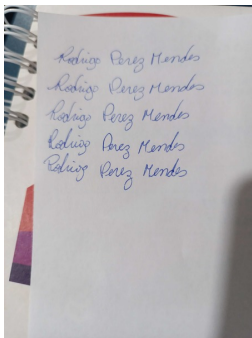 Rodrigo Perez Mendes
Rodrigo Perez Mendes
Rodrigo Perez Mendes
Rodrigo Perez Mendes
Rodrigo Perez Mendes